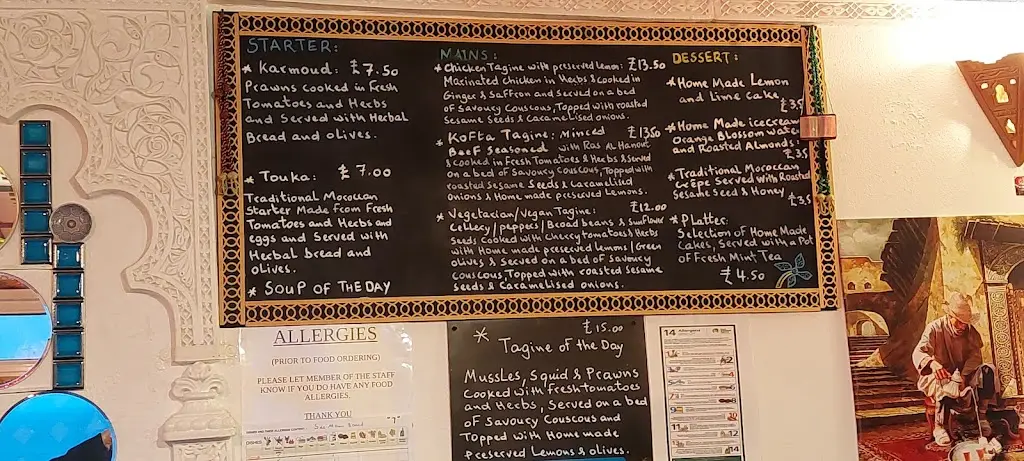 STARTER:
* Karmoud: £7.50
Prawns cooked in Fresh
Tomatoes and Herbs
and Served with Herbal
Bread and olives.
* Touka: £7.00
Traditional Moroccan
Starter Made from Fresh
Tomatoes and Herbs and
eggs and Served with
Herbal bread and
olives.
* SOUP OF THE DAY
MAINS:
* Chicken Tagine with preserved lemon: £13.50
Marinated chicken in Herbs & cooked in
Ginger & Saffron and Served on a bed
of Savoury Couscous, Topped with roasted
Sesame Seeds & Caramelised onions.
* Kofta Tagine: Minced £13.50
Beef Seasoned with Ras Al Hanout
& cooked in Fresh Tomatoes & Herbs & Served
on a bed of Savoury Couscous, Topped with
roasted Sesame Seeds & Caramelised
onions & Home made preserved Lemons.
* Vegetarian/Vegan Tagine: £12.00
Cellery/peppers/Broad beans & Sunflower
Seeds Cooked with Cherry Tomatoes & Herbs
with Home made preserved lemons/Green
olives & Served on a bed of Savoury
couscous, Topped with roasted Sesame
Seeds & Caramelised onions.
DESSERT:
* Home Made Lemon
and lime cake,
£3.5
* Home Made icecream
Orange Blossom water
and Roasted Almonds:
£3.5
* Traditional Moroccan
Crêpe Served with Roasted
Sesame Seed & Honey
£3.5
* Platter:
Selection of Home Made
Cakes, Served with a Pot
of Fresh Mint Tea
£4.50
ALLERGIES
(PRIOR TO FOOD ORDERING)
PLEASE LET MEMBER OF THE STAFF
KNOW IF YOU DO HAVE ANY FOOD
ALLERGIES.
THANK YOU
* £15.00
Tagine of the Day
Mussles, Squid & Prawns
Cooked with Fresh tomatoes
and Herbs, Served on a bed
of Savoury Couscous and
Topped with Home made
preserved Lemons & olives.
14 Allergens